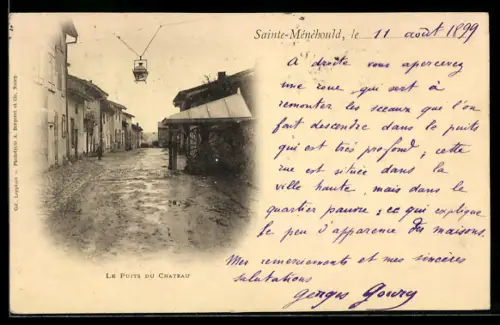 Sainte-Ménéhould, le 11 août 1899
A droite vous apercevez
une roue qui sert à
remonter les sceaux que l'on
fait descendre dans le puits
qui est très profond, cette
rue est située dans la
ville haute, mais dans le
quartier pauvre; ce qui explique
le peu d'apparence des maisons.
Mes remerciements et mes sincères
salutations
Georges Gowry
LE PUITS DU CHATEAU
Phototypie A. Bergeret et Cie, Nancy